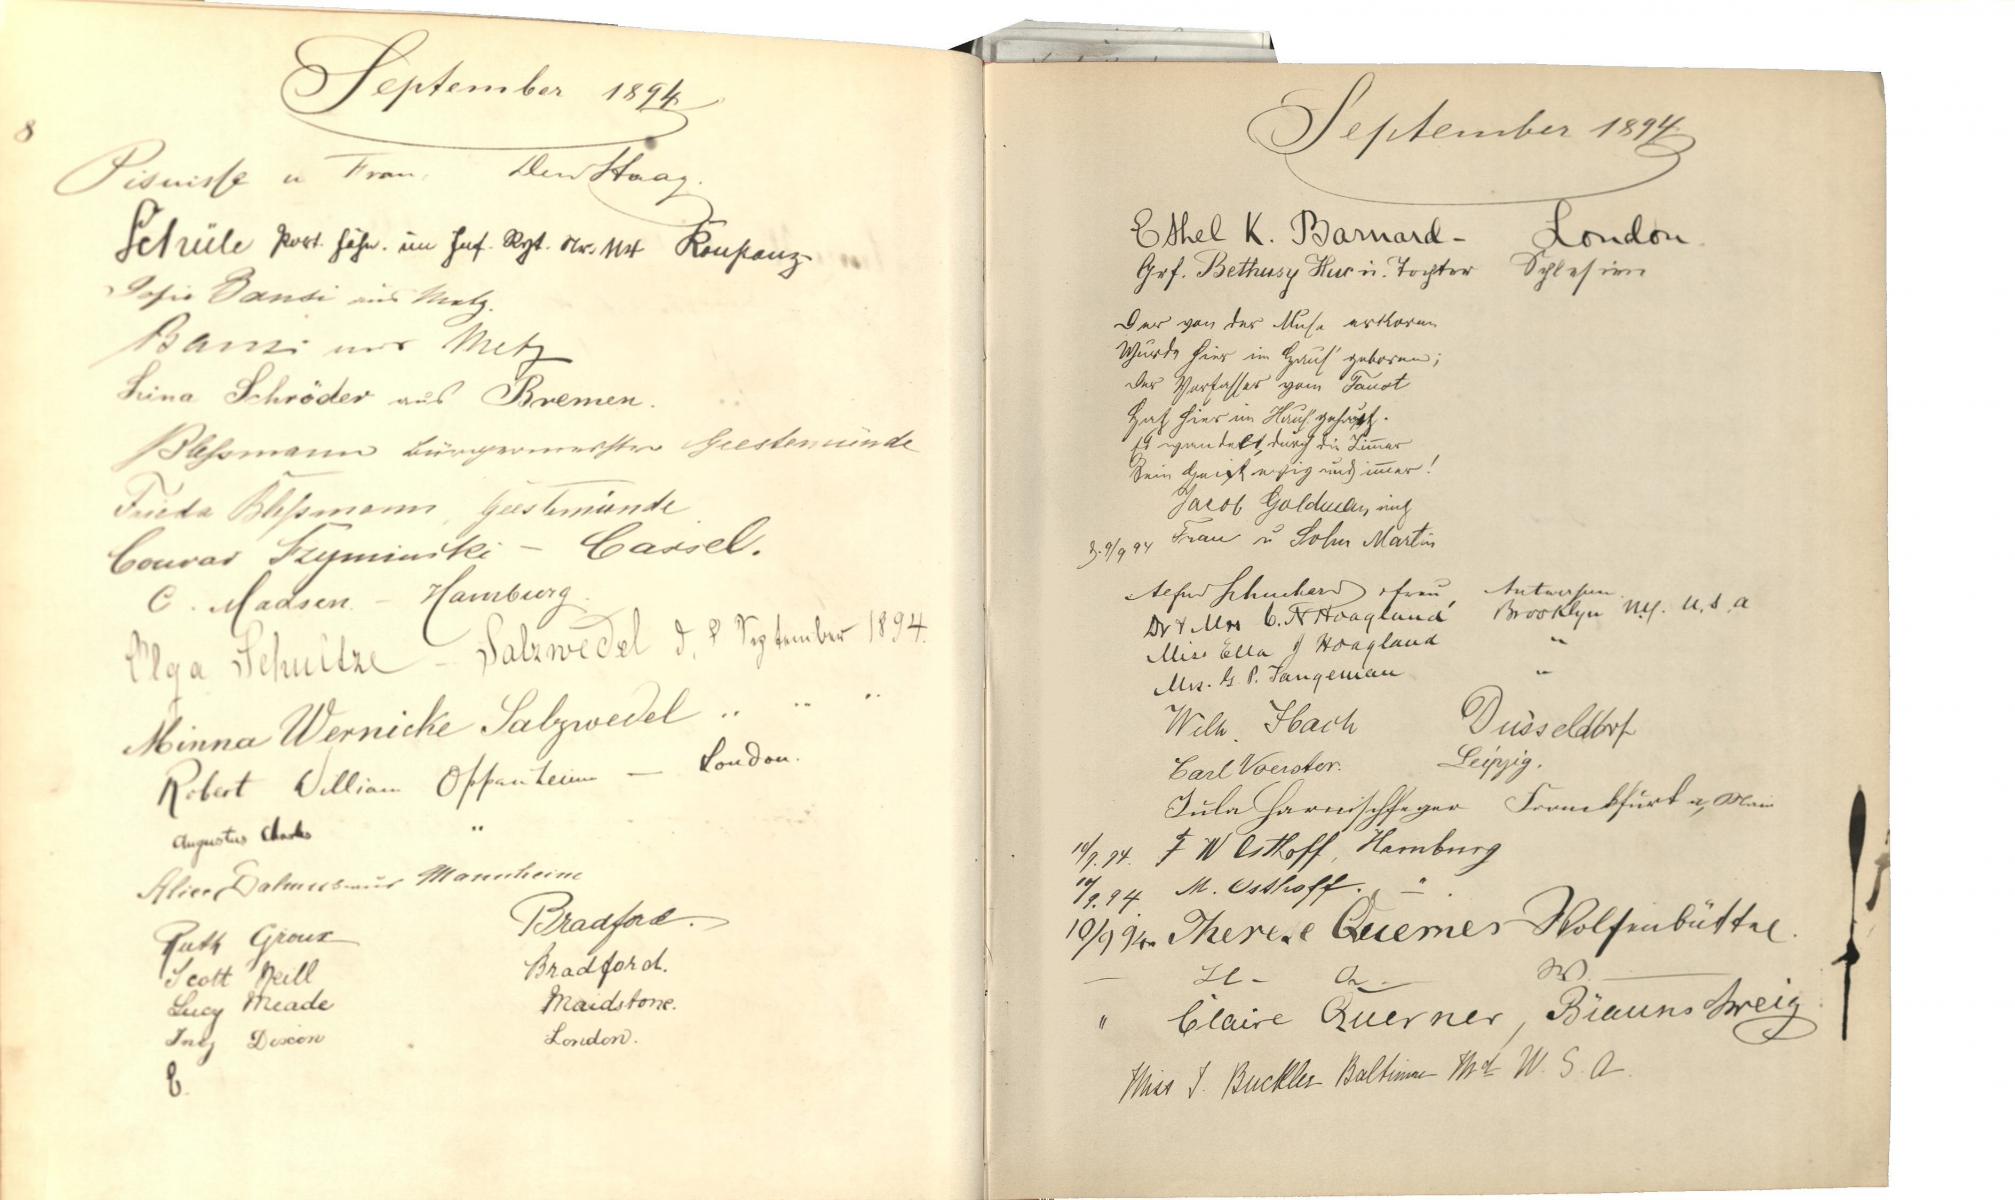 September 1894
8
Pisuisse u Frau. Den Haag.
Schüle Port. Fähn. im Inf. Rgt. Nr. 114 Konstanz
Bansi aus Metz.
Bansi aus Metz
Lina Schröder aus Bremen.
Bleßmann Bürgermeister Geestemünde
Frieda Bleßmann, Geestemünde
Conrad Szyminski – Cassel.
C. Madsen – Hamburg.
Olga Schultze – Salzwedel d. 8 September 1894.
Minna Wernicke Salzwedel " " "
Robert William Oppenheim – London.
Augustus Charles "
Alice Dahmus aus Mannheim
Ruth Groux Bradford.
Scott Neill Bradford.
Lucy Meade Maidstone.
Inez London.
E.
September 1894
Ethel K. Barnard – London.
Grf. Bethusy Huc u. Tochter Schlesien
Der von der Muse erkoren
Wurde hier im Haus' geboren;
Der Verfasser vom Faust
Hat hier im Haus gehaust.
Es wandelt durch die Zimmer
Sein Geist ewig und immer!
Jacob Goldman mit
d. 9/9 94 Frau u Sohn Martin
Schuchard & frau, Antwerpen.
Dr & Mrs C. N Hoagland Brooklyn N.Y. U.S.A
Miss Ella J Hoagland "
Mrs. G. P. Tangeman "
Wilh. Ibach Düsseldorf
Carl Voerster. Leipzig.
Jula Harnischfeger Frankfurt a/ Main
10/9. 94. F W Osthoff, Hamburg
10/9. 94 M. Osthoff. – "
10/9 94. Therese Querner Wolfenbüttel.
— H – Q. – W. —
" Claire Querner, Braunschweig
Miss J. Buckler Baltimore Md U. S. A.